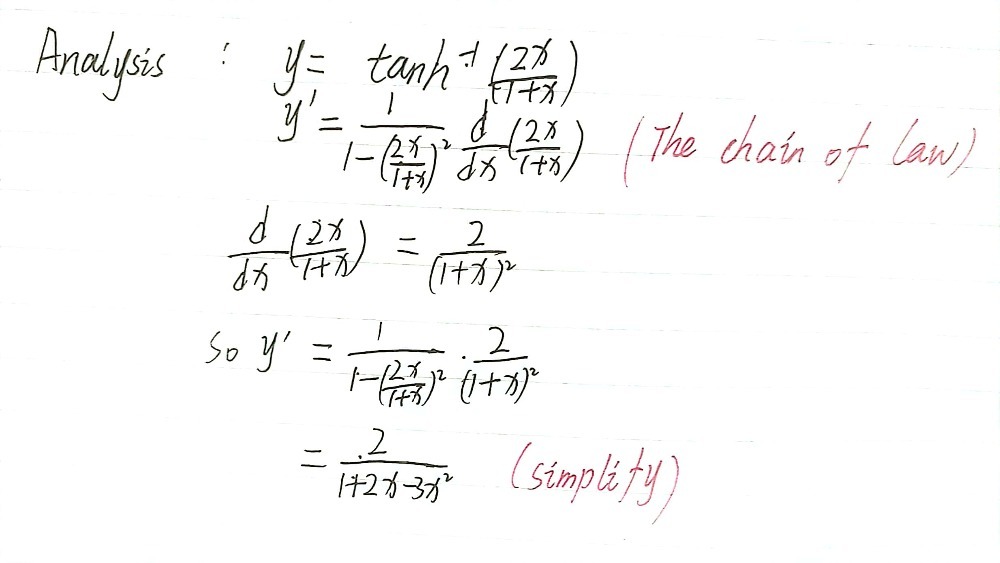 Analysis : y = tanh⁻¹(2x/(1+x))
y' = 1/(1-(2x/(1+x))²) d/dx (2x/(1+x)) (The chain of law)
d/dx (2x/(1+x)) = 2/(1+x)²
So y' = 1/(1-(2x/(1+x))²) · 2/(1+x)²
= 2/(1+2x-3x²) (simplity)